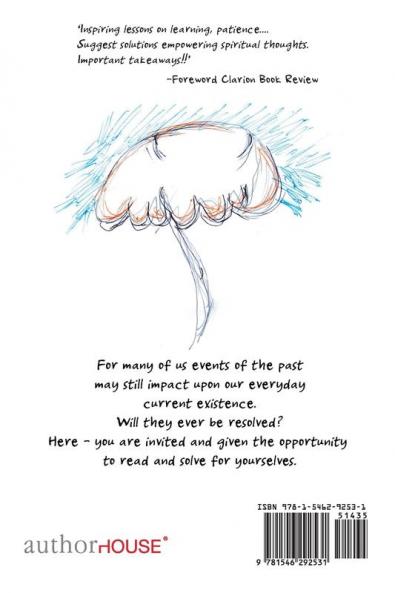 'Inspiring lessons on learning, patience....
Suggest solutions empowering spiritual thoughts.
Important takeaways!!'
-Foreword Clarion Book Review
For many of us events of the past
may still impact upon our everyday
current existence.
Will they ever be resolved?
Here - you are invited and given the opportunity
to read and solve for yourselves.
ISBN 978-1-5462-9253-1
51435
9 781546 292531
authorHOUSE®